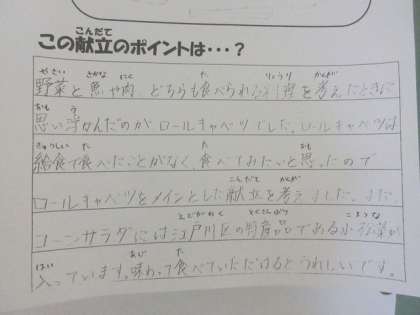 この献立のポイントは・・・?
野菜と魚や肉、どちらも食べられる料理を考えたときに
思い浮かんだのがロールキャベツでした。ロールキャベツは
給食で食べたことがなく、食べてみたいと思ったので
ロールキャベツをメインとした献立を考えました。また
コーンサラダには江戸川区の特産品である小松菜が
入っています。味わって食べていただけるとうれしいです。